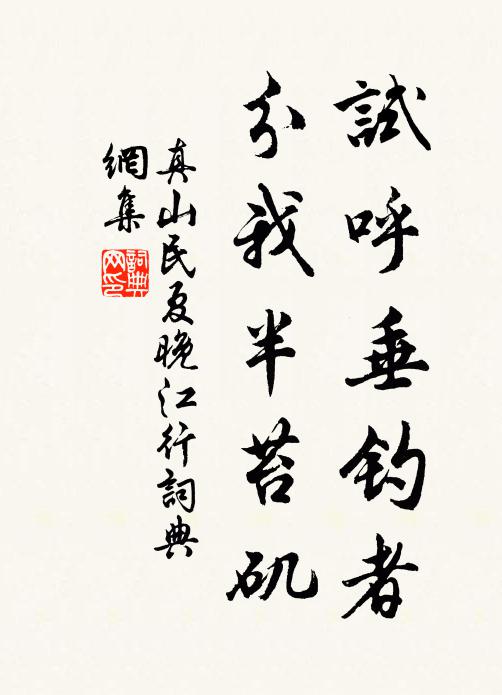 試呼垂釣者
分我半苔矶
真山民夏晚江行詞典
網集
詞典
网印